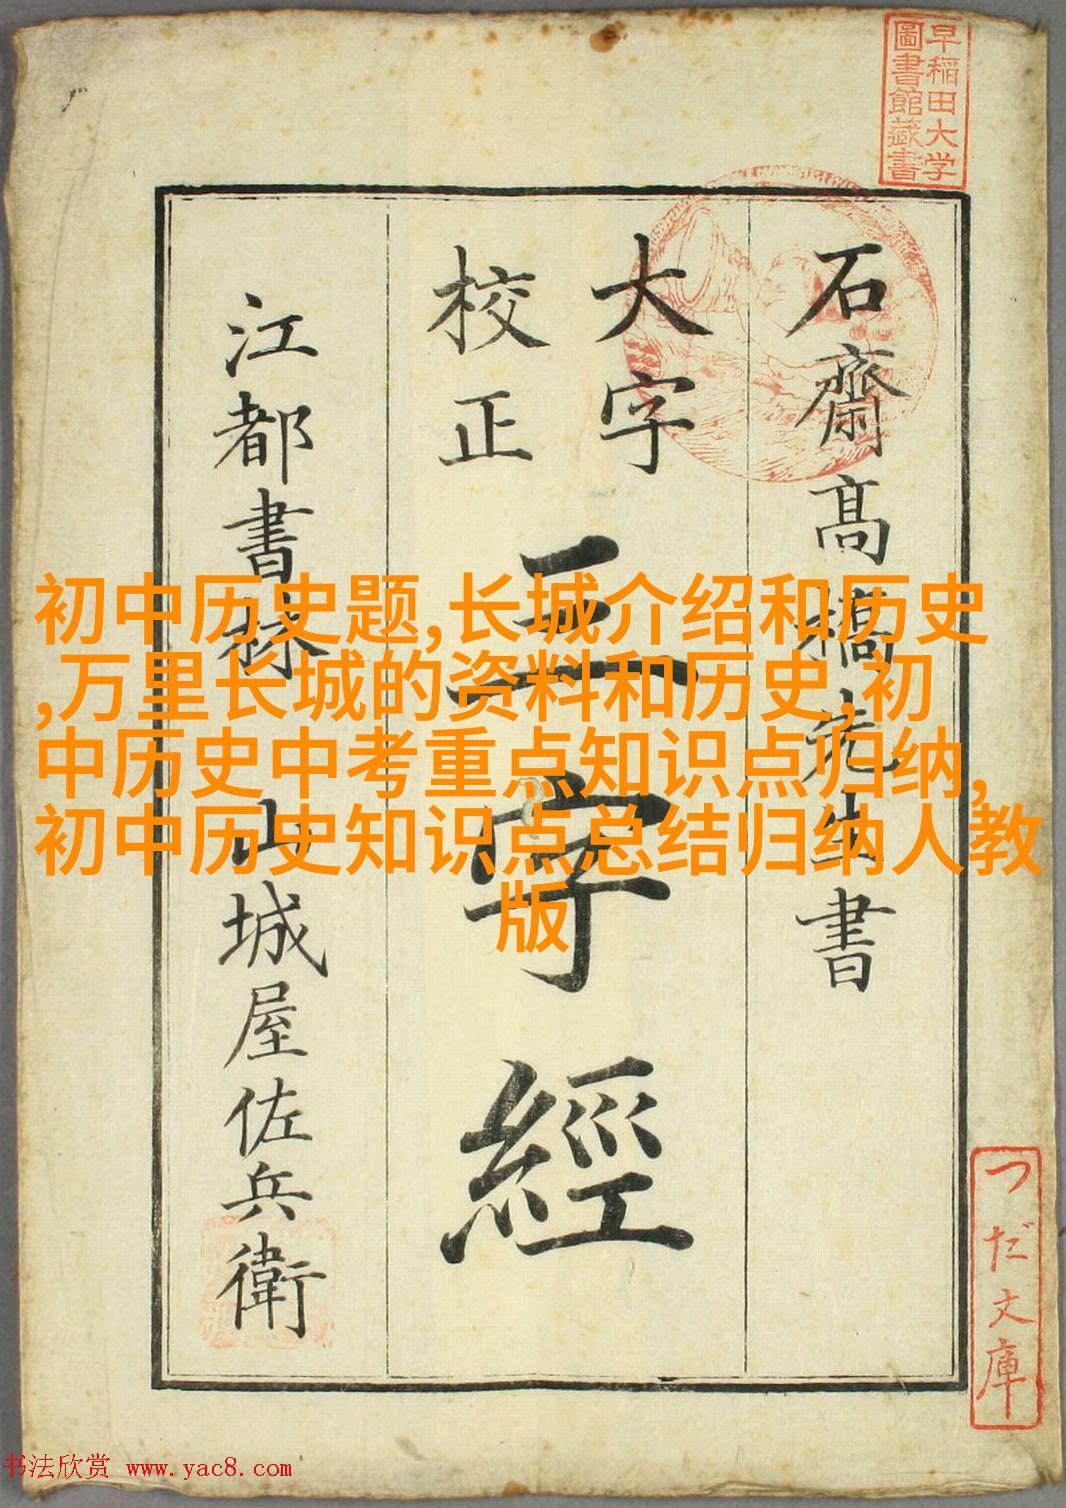 早稲田大学
圖書館藏書
石齋高橋先生書
大字
校正
三字經
江都書林 山城屋佐兵衛
初中历史题,长城介绍和历史
,万里长城的资料和历史,初
中历史中考重点知识点归纳,
初中历史知识点总结归纳人教
版
つだ文庫
书法欣赏 www.yac8.com